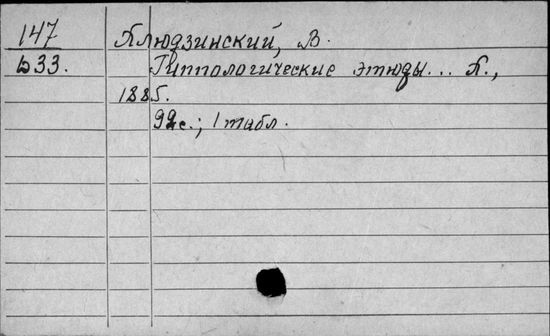 147
Клюдзинский, В.
Б33.
Гиппологические этюды... К.,
1885.
92с.; 1 табл.